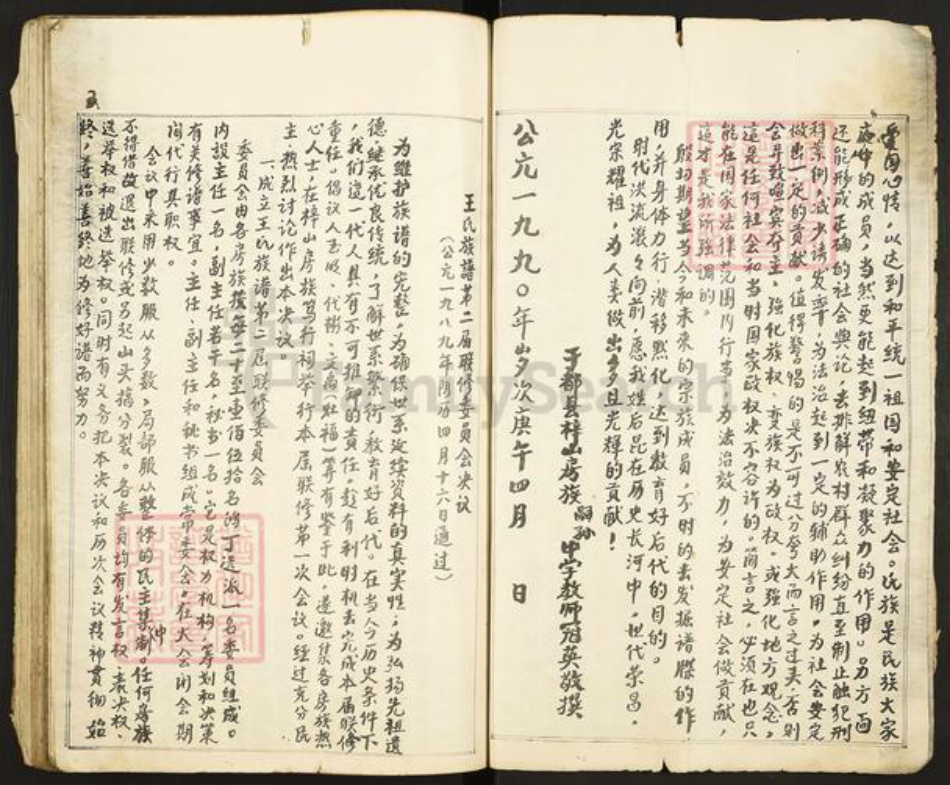 爱国心情，以达到和平统一祖国和安定社会。氏族是民族大家
庭中的成员，当然更能起到纽带和凝聚力的作用。另方面
还能形成正确的社会舆论，去排解农村群众纠纷直至制止触犯刑
科案例，减少诱发率，为法治起到一定的辅助作用。为社会安定
做出一定的贡献。值得警惕的是不可过分夸大而言之过头，否则
会导致喧宾夺主，强化族权、变族权为政权。或强化地方观念，
这是任何社会和当时国家政权决不容许的。简言之，必须在也只
能在国家法律范围内行为，为法治效力，为安定社会做贡献，
这才是我所强调的。
殷切期望当今和未来的宗族成员，不时的去发掘谱牒的作
用，并身体力行，潜移默化，达到教育好后代的目的。
时代洪流滚々向前，愿我姓后昆在历史长河中，世代荣昌，
光宗耀祖，为人类做出多且光辉的贡献！
于都县梓山房族 嗣孙 中学教师冠英敬撰
公元一九九〇年岁次庚午四月 日
王氏族谱第二届联修委员会决议
（公元一九八九年阴历四月十六日通过）
为维护族谱的完整，为确保世系延续资料的真实性，为弘扬先祖遗
德，继承优良传统，了解世系繁衍，教育好后代。在当今历史条件下
，我们这一代人具有不可推卸的责任。趁有利时机去完成本届联修
重任。倡议人 等有鉴于此，遂邀集各房族热
心人士，在梓山房族笃行祠举行本届联修第一次会议。经过充分民
主，热烈讨论作出本决议。
一、成立王氏族谱第二届联修委员会
委员会由各房族按每二十至壹佰伍拾名 丁选派一名委员组成。
内设主任一名，副主任若干名，秘书一名。它是权力机构，筹划和决策
有关修谱事宜。主任、副主任和秘书组成常委会，在大会闭会期
间代行其职权。
会议中采用少数服从多数，局部服从整体的民主集中制。任何房族
不得借故退出联修或另起山头搞分裂。各委员均有发言权、表决权、
选举权和被选举权。同时有义务把本决议和历次会议精神贯彻始
终，善始善终地为修好谱而努力。